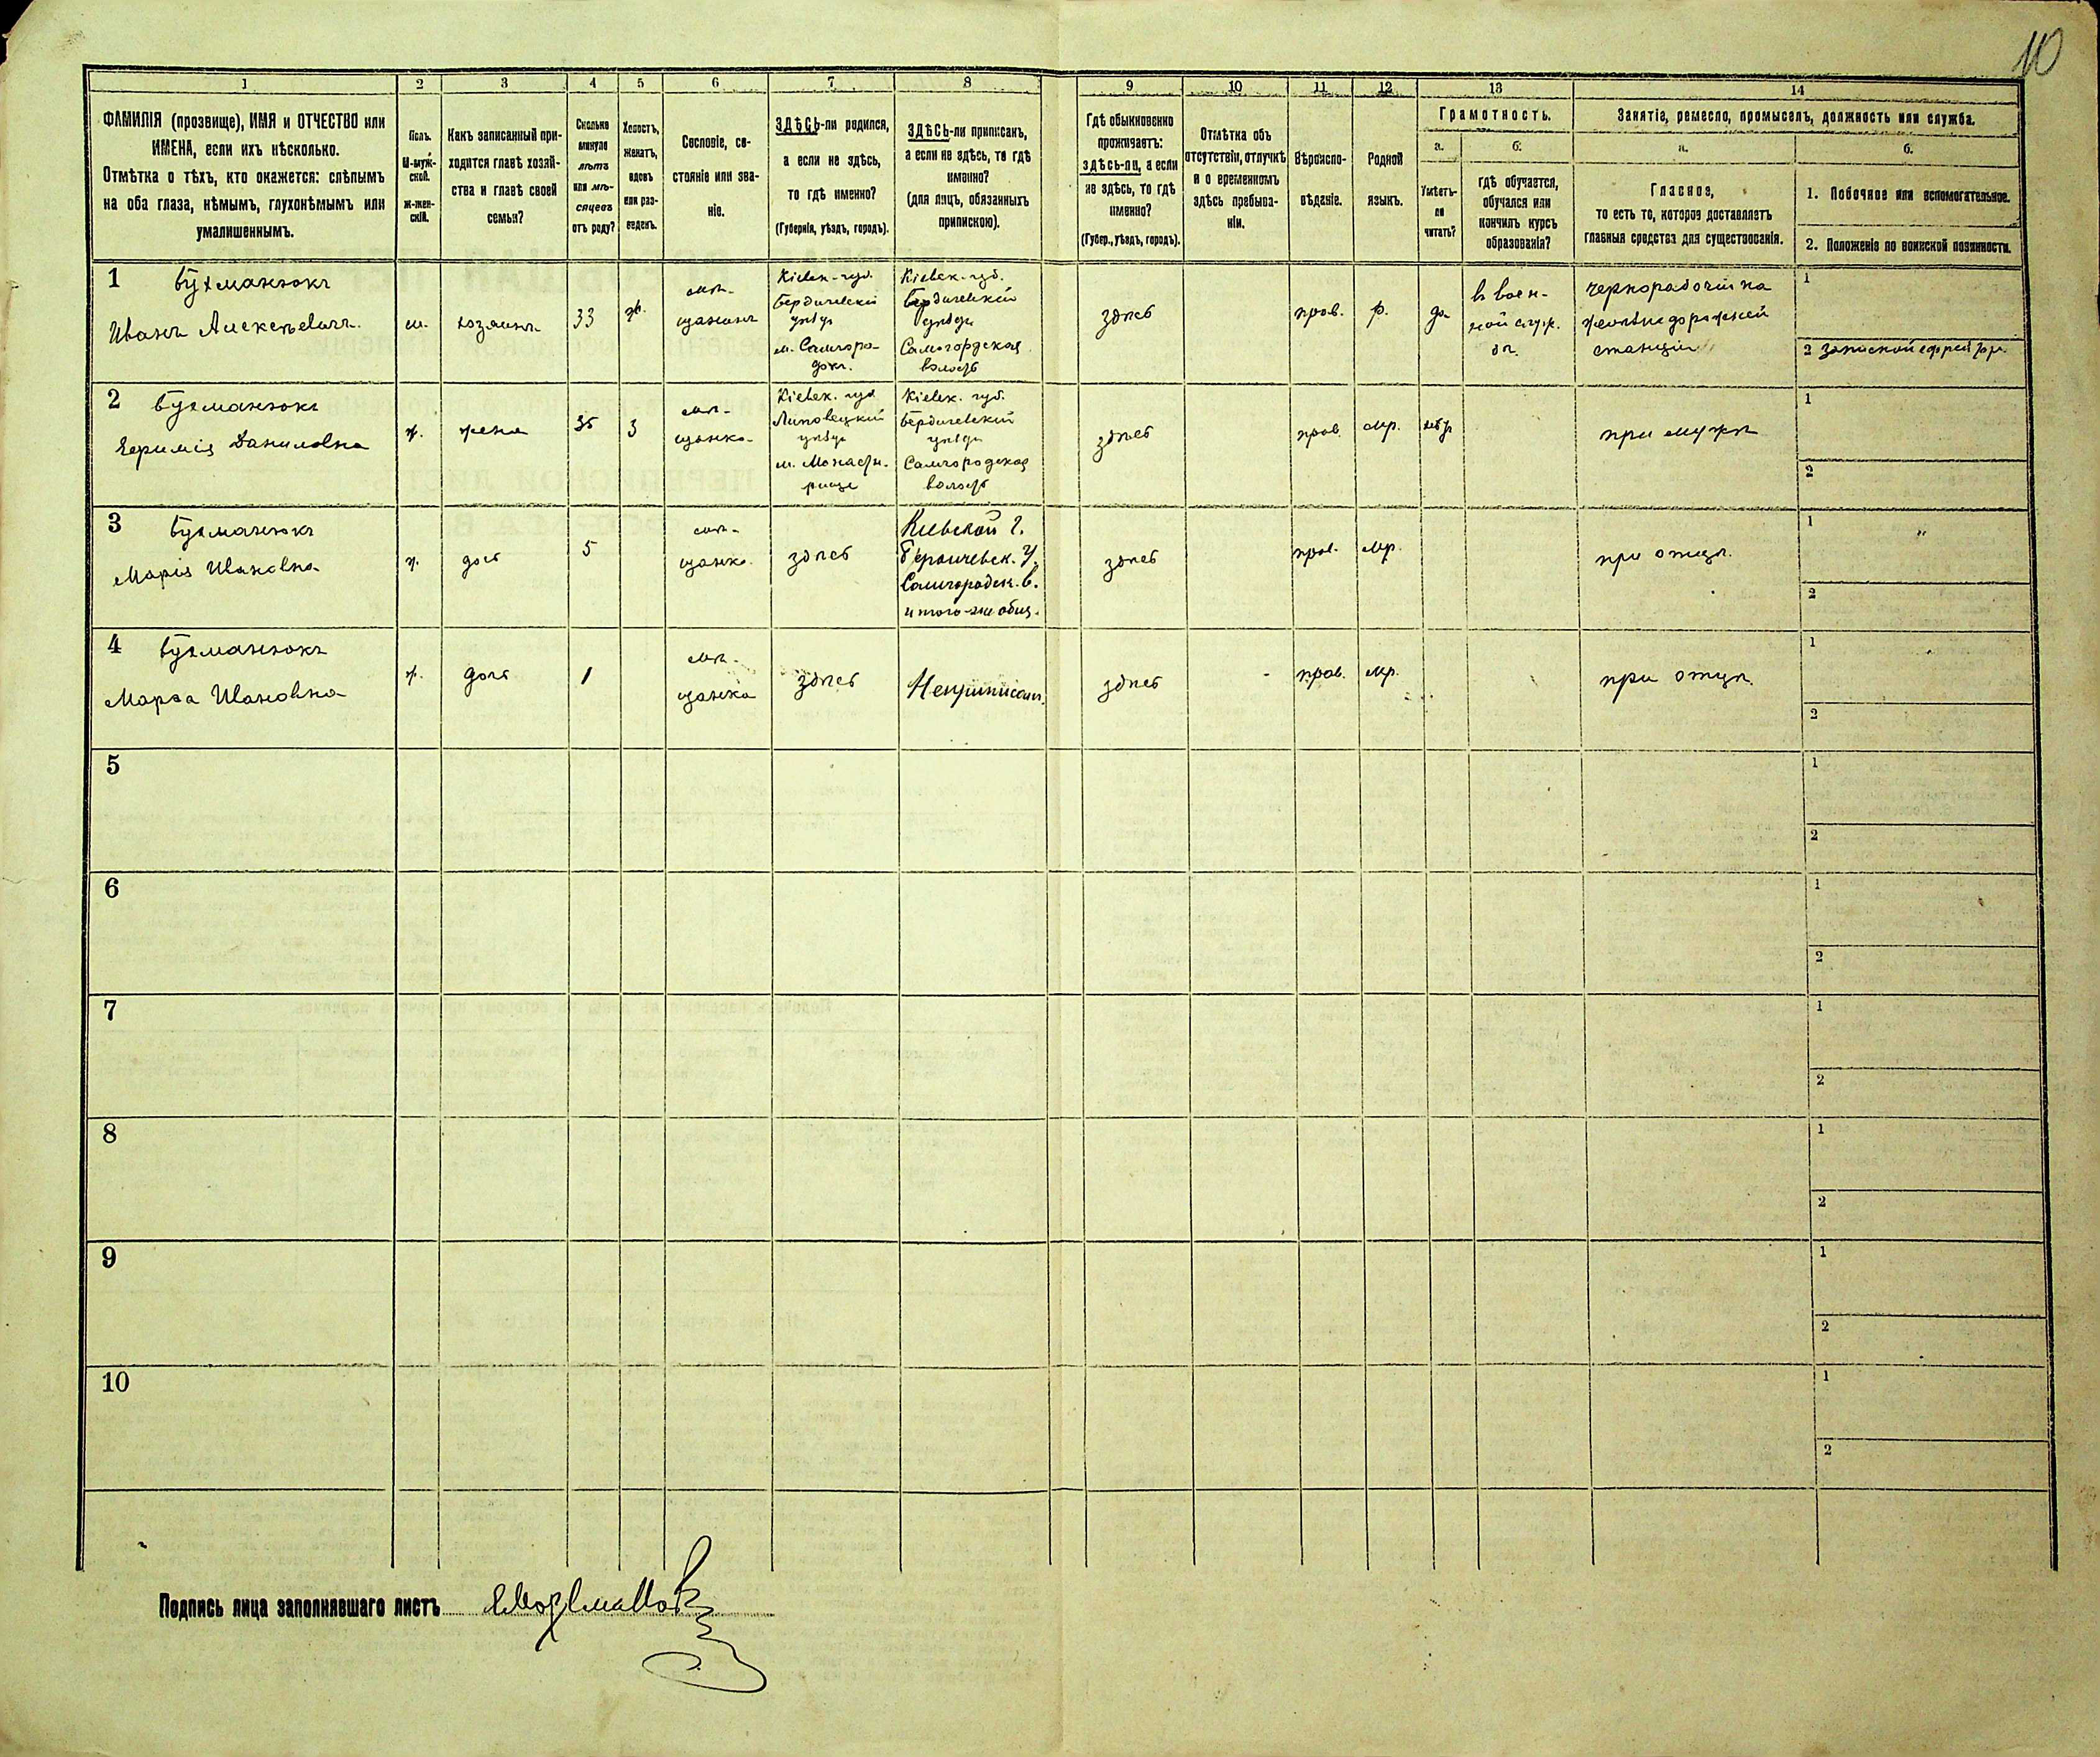 10
1
2
3
4
5
6
7
8
9
10
11
12
13
14
ФАМИЛІЯ (прозвище), ИМЯ и ОТЧЕСТВО или
ИМЕНА, если ихъ нѣсколько.
Отмѣтка о тѣхъ, кто окажется: слѣпымъ
на оба глаза, нѣмымъ, глухонѣмымъ или
умалишеннымъ.
Полъ.
М-муж-
ской.
ж-жен-
скій.
Какъ записанный при-
ходится главѣ хозяй-
ства и главѣ своей
семьи?
Сколько
минуло
лѣтъ
или мѣ-
сяцевъ
отъ роду?
Холостъ,
женатъ,
вдовъ
или раз-
веденъ.
Сословіе, со-
стояніе или зва-
ніе.
ЗДѢСЬ-ли родился,
а если не здѣсь,
то гдѣ именно?
(Губернія, уѣздъ, городъ).
ЗДѢСЬ-ли приписанъ,
а если не здѣсь, то гдѣ
именно?
(для лицъ, обязанныхъ
припискою).
Гдѣ обыкновенно
проживаетъ:
здѣсь-ли, а если
не здѣсь, то гдѣ
именно?
(Губер., уѣздъ, городъ).
Отмѣтка объ
отсутствіи, отлучкѣ
и о временномъ
здѣсь пребыва-
ніи.
Вѣроиспо-
вѣданіе.
Родной
языкъ.
Грамотность.
а.
Умѣетъ-
ли
читать?
б.
гдѣ обучается,
обучался или
кончилъ курсъ
образованія?
Занятіе, ремесло, промыселъ, должность или служба.
а.
Главное,
то есть то, которое доставляетъ
главныя средства для существованія.
б.
1. Побочное или вспомогательное.
2. Положеніе по воинской повинности.
1
Бухманюкъ
Иванъ Алексѣевичъ.
м.
хозяинъ
33
ж.
мѣ-
щанинъ
Кіевск. губ.
Бердичевскій
уѣздъ
м. Самгоро-
докъ.
Кіевск. губ.
Бердичевскій
уѣздъ
Самгородская
волость
здѣсь
прав.
р.
да
въ воен-
ной служ.
бѣ.
чернорабочій на
желѣзнодорожной
станціи
1
2 запасной
2
Бухманюкъ
Даниловна
ж.
жена
35
З
мѣ-
щанка
Кіевск. губ.
Липовецкій
уѣздъ
м. Монасты-
рище
Кіевск. губ.
Бердичевскій
уѣздъ
Самгородская
волость
здѣсь
прав.
мр.
при мужѣ
1
2
3
Бухманюкъ
Марія Ивановна
ж.
дочь
5
мѣ-
щанка
здѣсь
Кіевской г.
Бердичевск. у.
Самгородск. в.
и того-же общ.
здѣсь
прав.
мр.
при отцѣ.
1 "
2
4
Бухманюкъ
Марѳа Ивановна
ж.
дочь
1
мѣ-
щанка
здѣсь
Неприписан.
здѣсь
-
прав.
мр.
при отцѣ.
1
2
5
1
2
6
1
2
7
1
2
8
1
2
9
1
2
10
1
2
Подпись лица заполнявшаго листъ